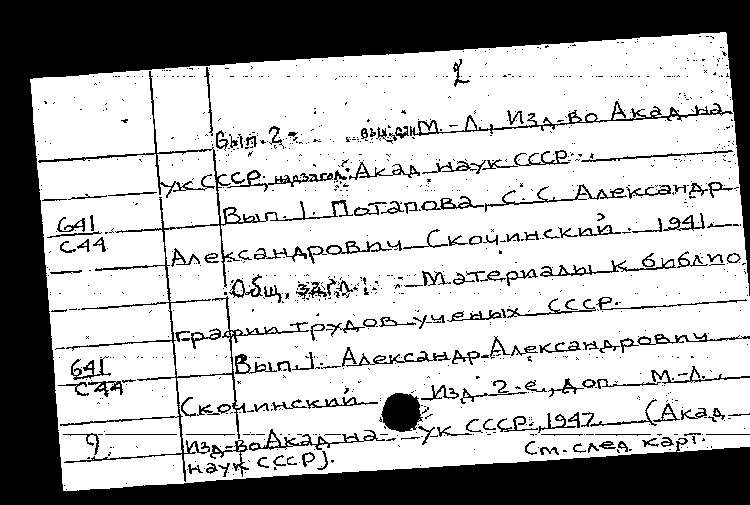 2
Вып. 2- вых. дан. М.-Л., Изд-во Акад на
ук СССР, надзагол: Акад наук СССР.
641 Вып. 1. Потапова, С. С. Александр
С44 Александрович Скочинский. 1941.
Общ. загл.: Материалы к библио
графии трудов ученых СССР.
641 Вып. 1. Александр Александрович
С44 Скочинский Изд. 2-е, доп. М-Л.,
9 Изд-во Акад на- ук СССР, 1947. (Акад
наук СССР). См. след карт.